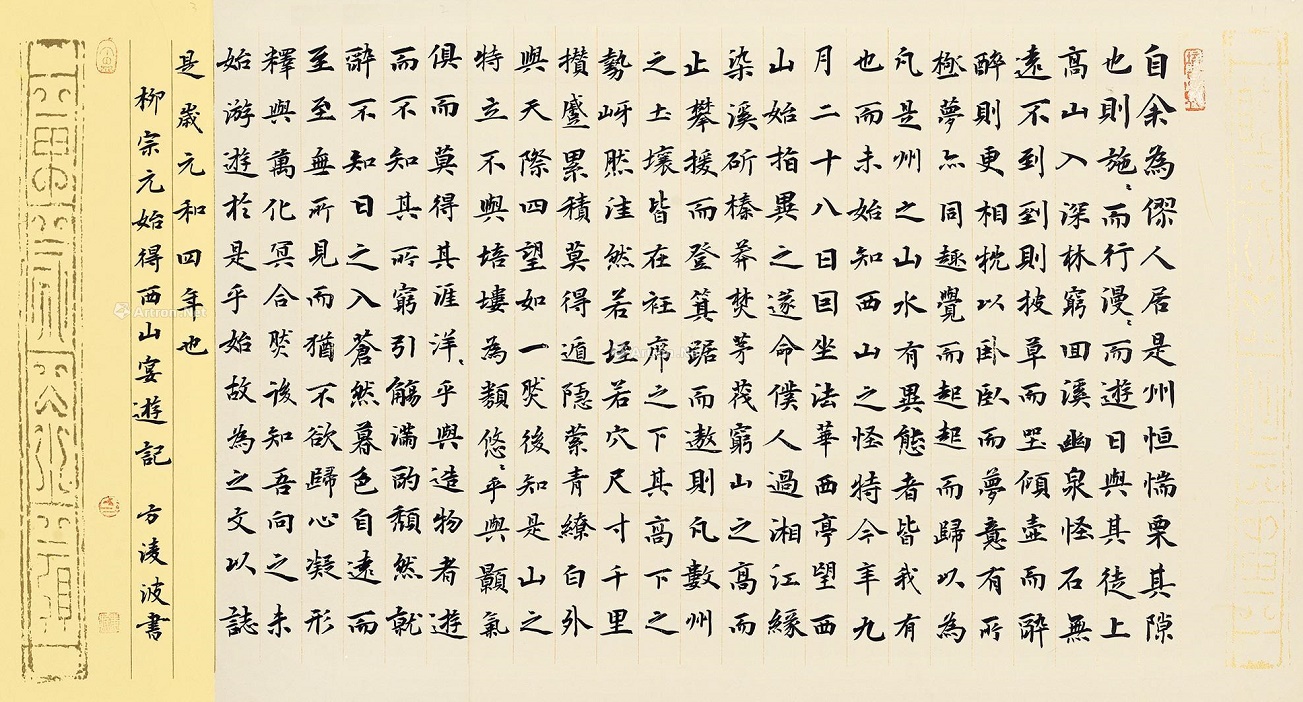 自余為僇人居是州恒惴栗其隙
也則施〻而行漫〻而遊日與其徒上
高山入深林窮回溪幽泉怪石無
遠不到到則披草而坐傾壺而醉
醉則更相枕以卧臥而夢意有所
極夢亦同趣覺而起起而歸以為
凡是州之山水有異態者皆我有
也而未始知西山之怪特今年九
月二十八日因坐法華西亭望西
山始指異之遂命僕人過湘江緣
染溪斫榛莽焚茅茷窮山之高而
止攀援而登箕踞而遨則凡數州
之土壤皆在衽席之下其高下之
勢岈然洼然若垤若穴尺寸千里
攢蹙累積莫得遁隱縈青繚白外
與天際四望如一然後知是山之
特立不與培塿為類悠〻乎與顥氣
俱而莫得其涯洋〻乎與造物者遊
而不知其所窮引觴滿酌頹然就
醉不知日之入蒼然暮色自遠而
至至無所見而猶不欲歸心凝形
釋與萬化冥合然後知吾向之未
始游遊於是乎始故為之文以誌
是歲元和四年也
柳宗元始得西山宴遊記 方淩波書
Artron.Net